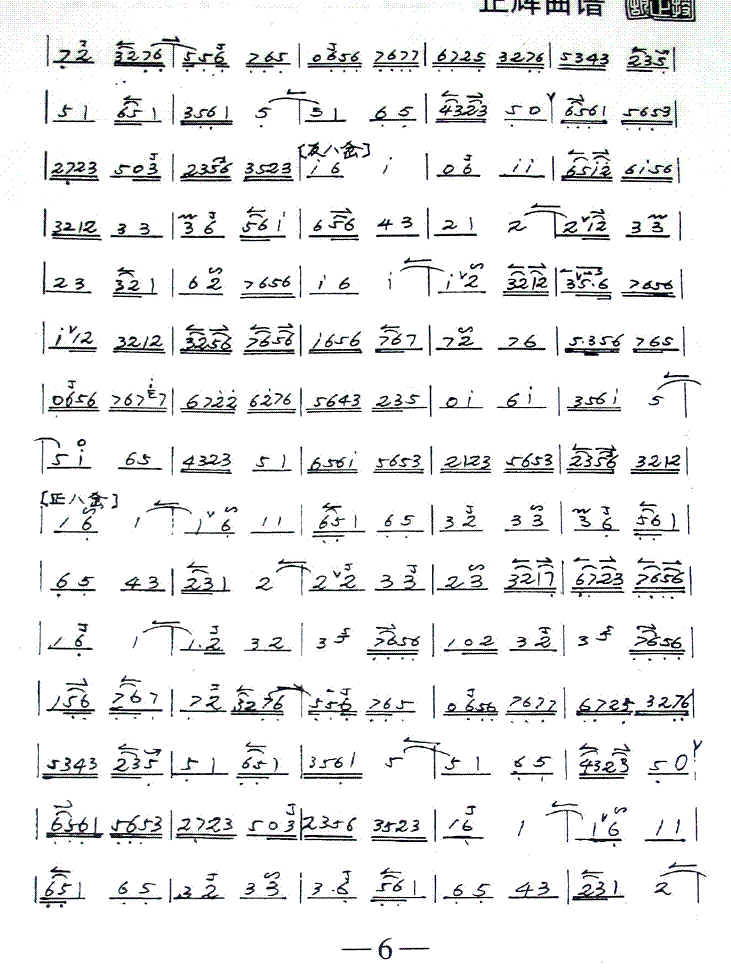 正辉曲谱
|72 3276|556 765|0656 7677|6725 3276|5343 235|
|51 651|3561 5|31 65|4323 50|6561 5653|
[反八岔]
|2723 503|2356 3523|i6 i|06 ii|651̇2̇ 6i56|
|3212 33|36 561̇|656 43|21 2|212 33|
|23 321|62 7656|i6 i|i2 3212|35·6 7656|
|i12 3212|3256 7656|i656 767|72 76|5·356 765|
|0656 76767|6722 6276|5643 235|0i 6i|356i 5|
|5i 65|4323 51|656i 5653|2123 5653|2356 3212|
[正八岔]
|16 1|16 11|651 65|32 33|36 561|
|65 43|231 2|22 33|23 3217|6723 7656|
|16 1|1·2 32|35 7656|102 32|35 7656|
|156 767|72 3276|556 765|0656 7677|6725 3276|
|5343 235|51 651|3561 5|51 65|4323 50|
|6561 5653|2723 503|2356 3523|16 1|16 11|
|651 65|32 33|3·6 561|65 43|231 2|
—6—